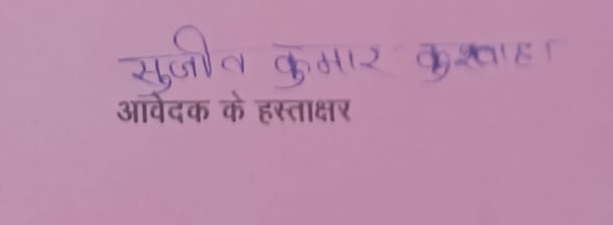 सुजीत कुमार कुशवाहा
आवेदक के हस्ताक्षर